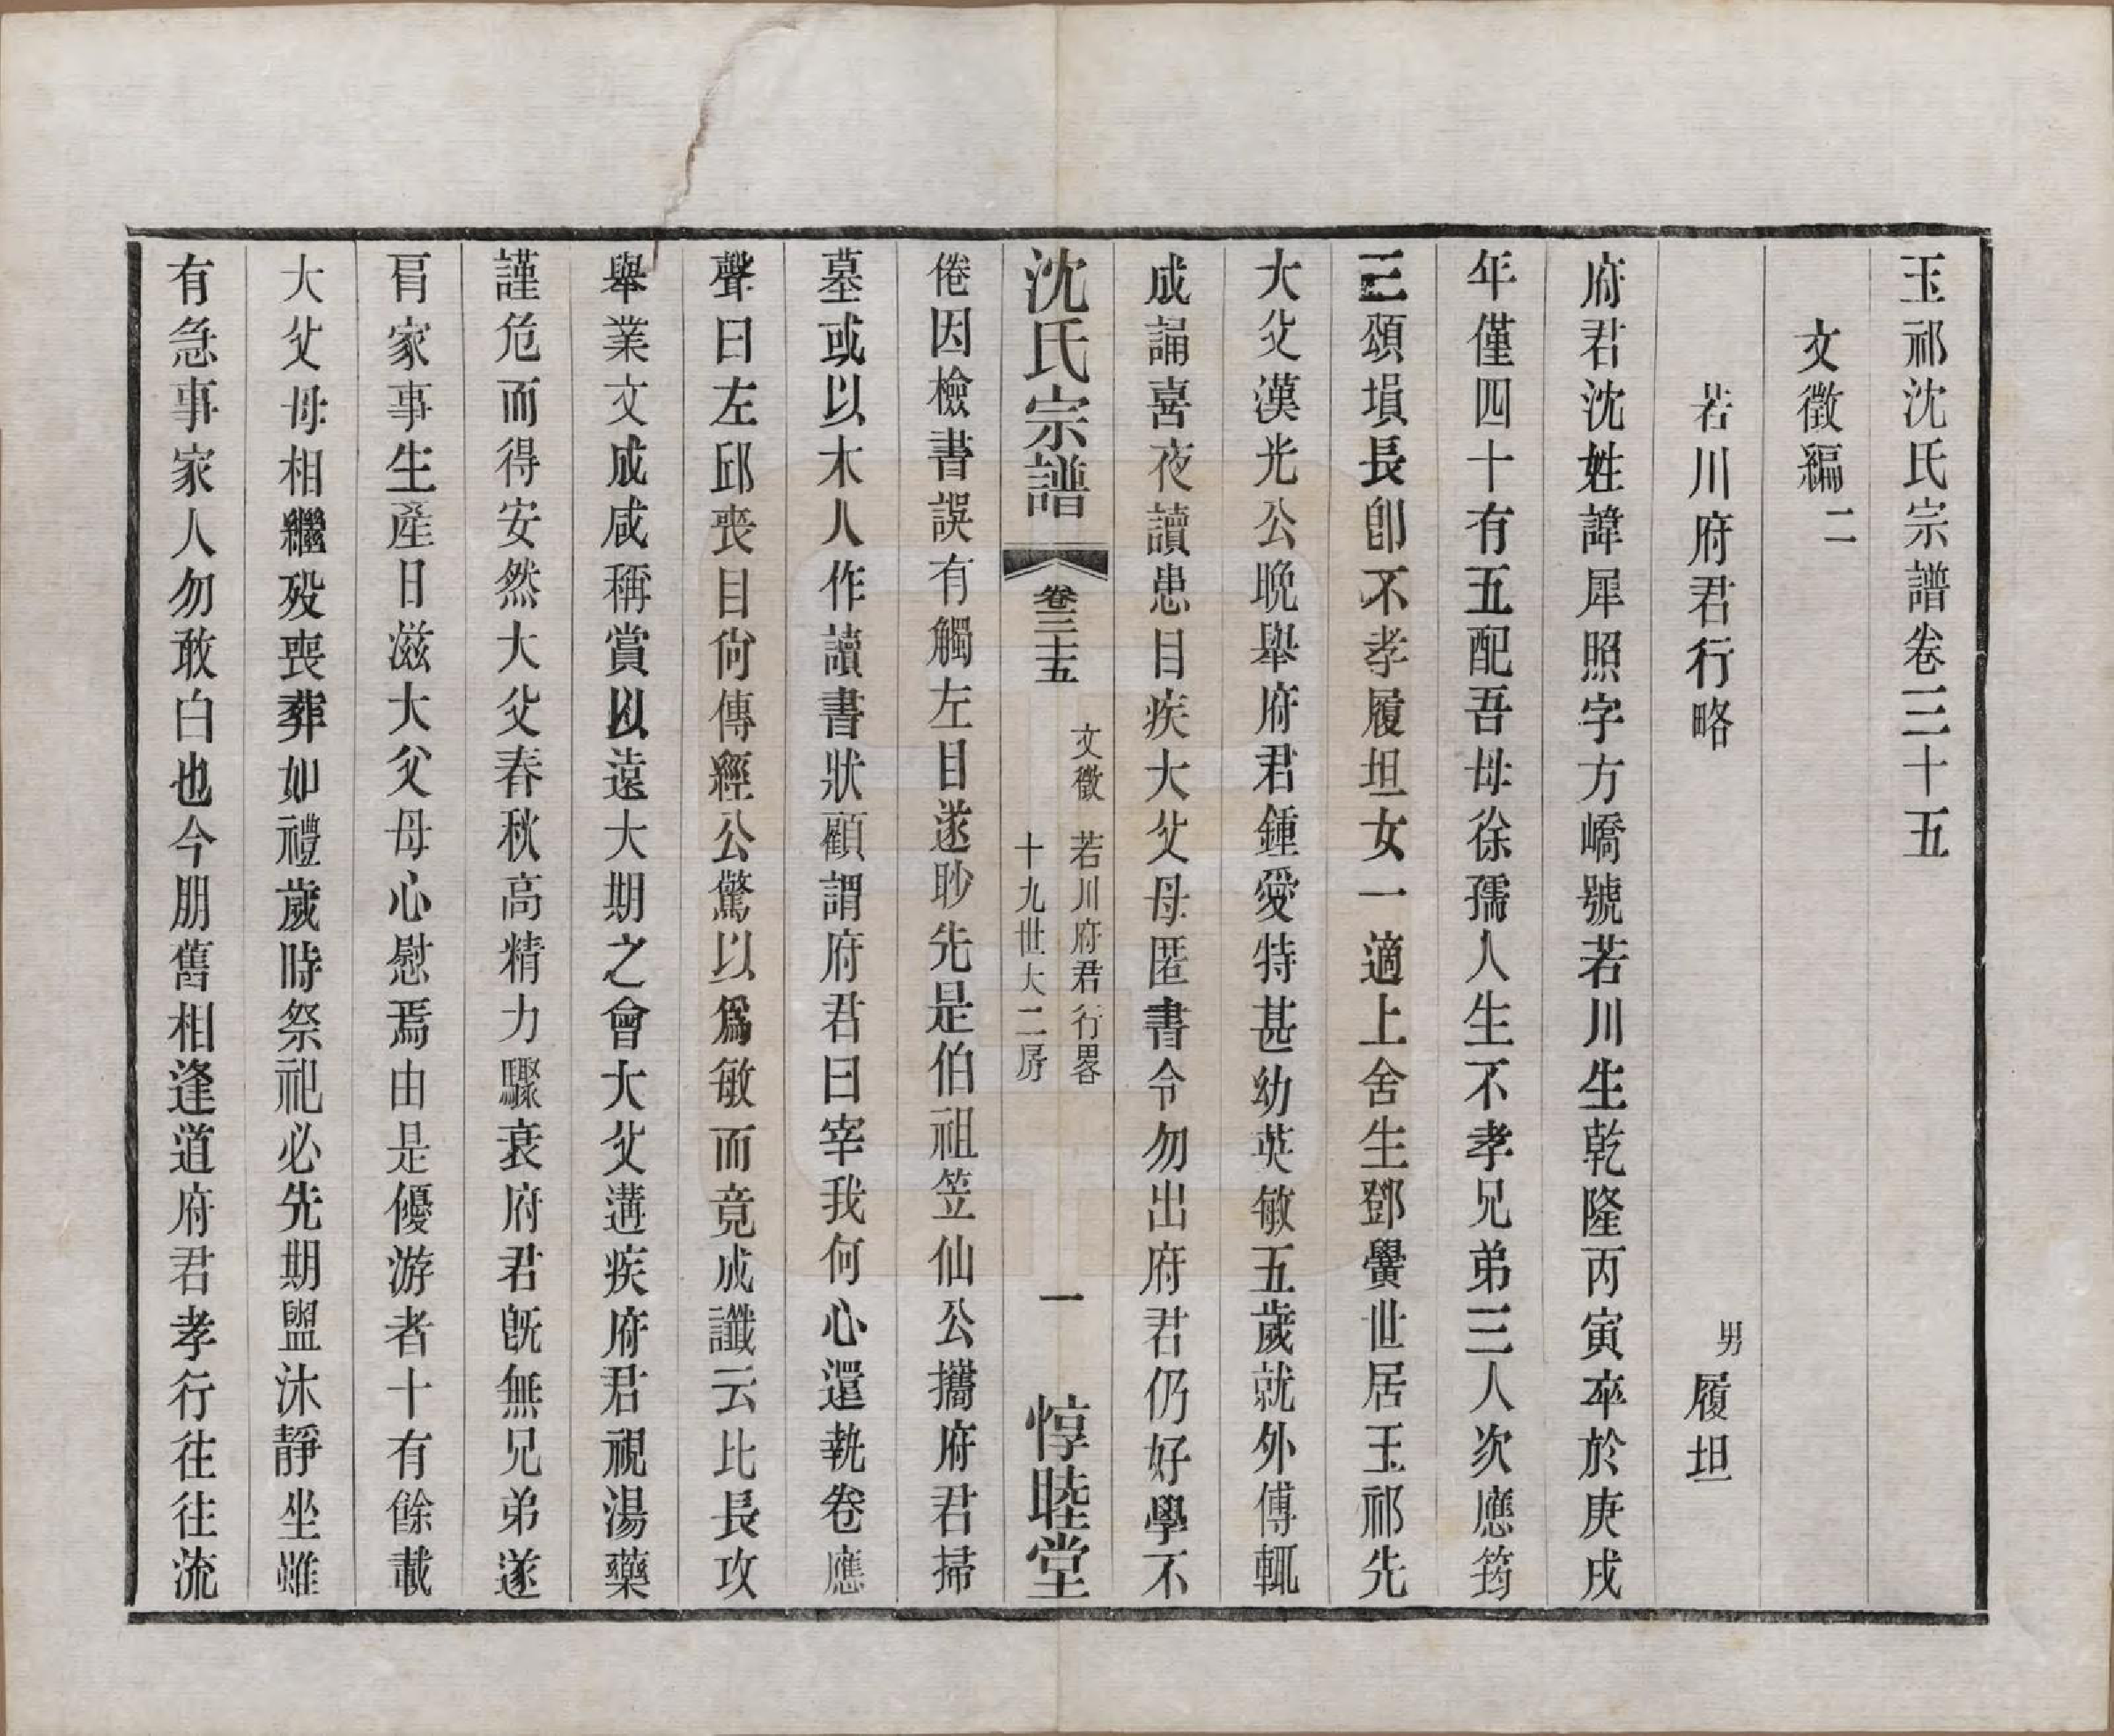 玉祁沈氏宗譜卷三十五
文徵編二
若川府君行略
男履坦
府君沈姓諱犀照字方嶠號若川生乾隆丙寅卒於庚戌
年僅四十有五配吾母徐孺人生不孝兄弟三人次應筠
三頌塤長卽不孝履坦女一適上舍生鄧黌世居玉祁先
大父漢光公晩舉府君鍾愛特甚幼英敏五歲就外傅輒
成誦喜夜讀患目疾大父母匿書令勿出府君仍好學不
沈氏宗譜
卷三十五
文徵 若川府君行畧
十九世大二房
一
惇睦堂
倦因檢書誤有觸左目遂眇先是伯祖笠仙公攜府君掃
墓或以木人作讀書狀顧謂府君曰宰我何心還執卷應
聲曰左邱喪目尙傳經公驚以爲敏而竟成讖云比長攻
舉業文成咸稱賞以遠大期之會大父遘疾府君視湯藥
謹危而得安然大父春秋高精力驟衰府君旣無兄弟遂
肩家事生產日滋大父母心慰焉由是優游者十有餘載
大父母相繼歿喪葬如禮歲時祭祀必先期盥沐靜坐雖
有急事家人勿敢白也今朋舊相逢道府君孝行往往流